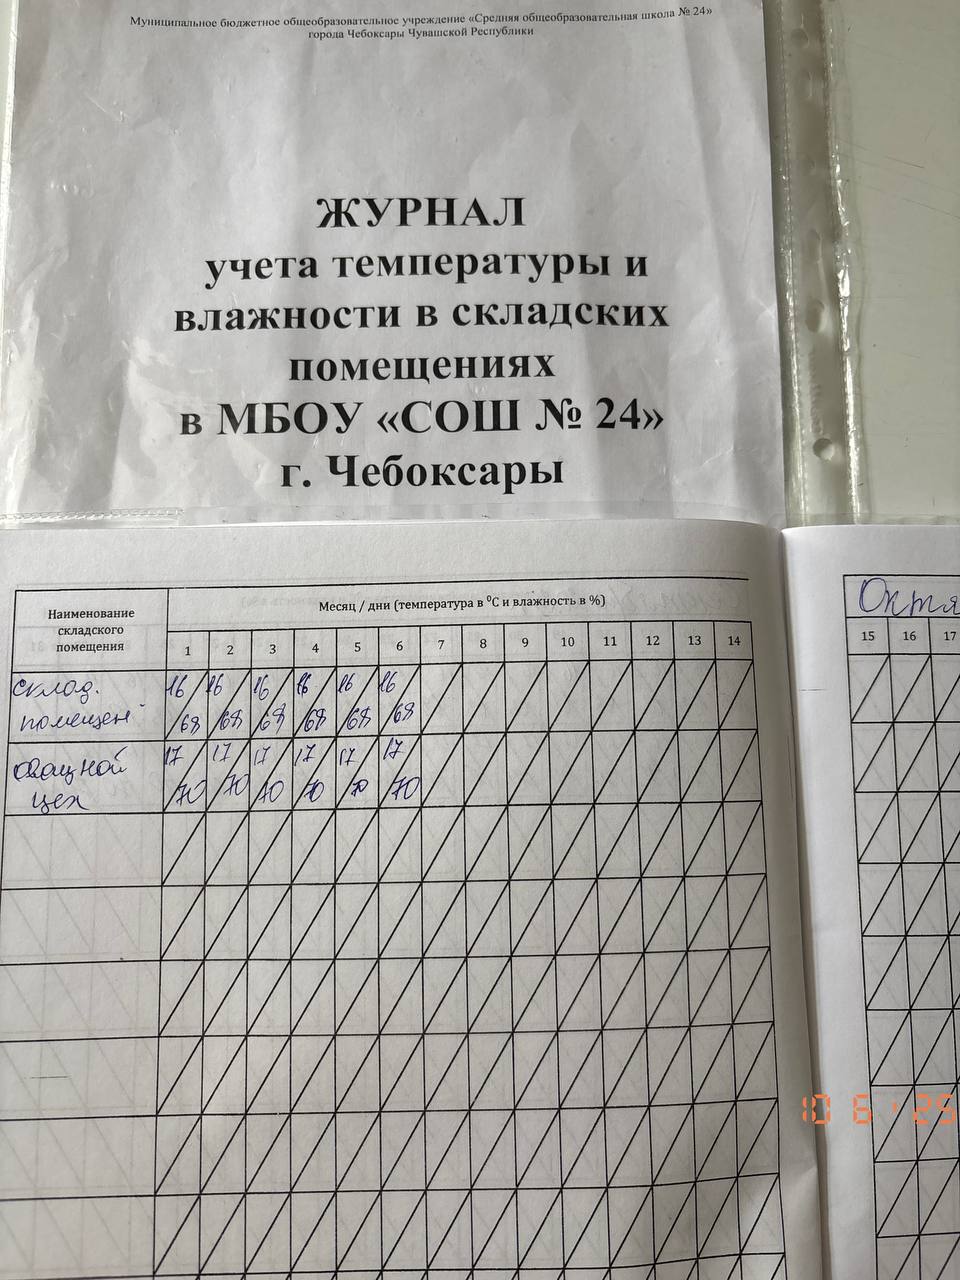 Муниципальное бюджетное общеобразовательное учреждение «Средняя общеобразовательная школа № 24»
города Чебоксары Чувашской Республики
ЖУРНАЛ
учета температуры и
влажности в складских
помещениях
в МБОУ «СОШ № 24»
г. Чебоксары
Наименование
складского
помещения
Месяц / дни (температура в ⁰С и влажность в %)
1 2 3 4 5 6 7 8 9 10 11 12 13 14
Октя
15 16 17
склад.
помещен
16 16 16 16 16 16
68 68 68 68 68 68
овощной
цех
17 17 17 17 17 17
70 70 70 70 70 70
10 6 ' 25